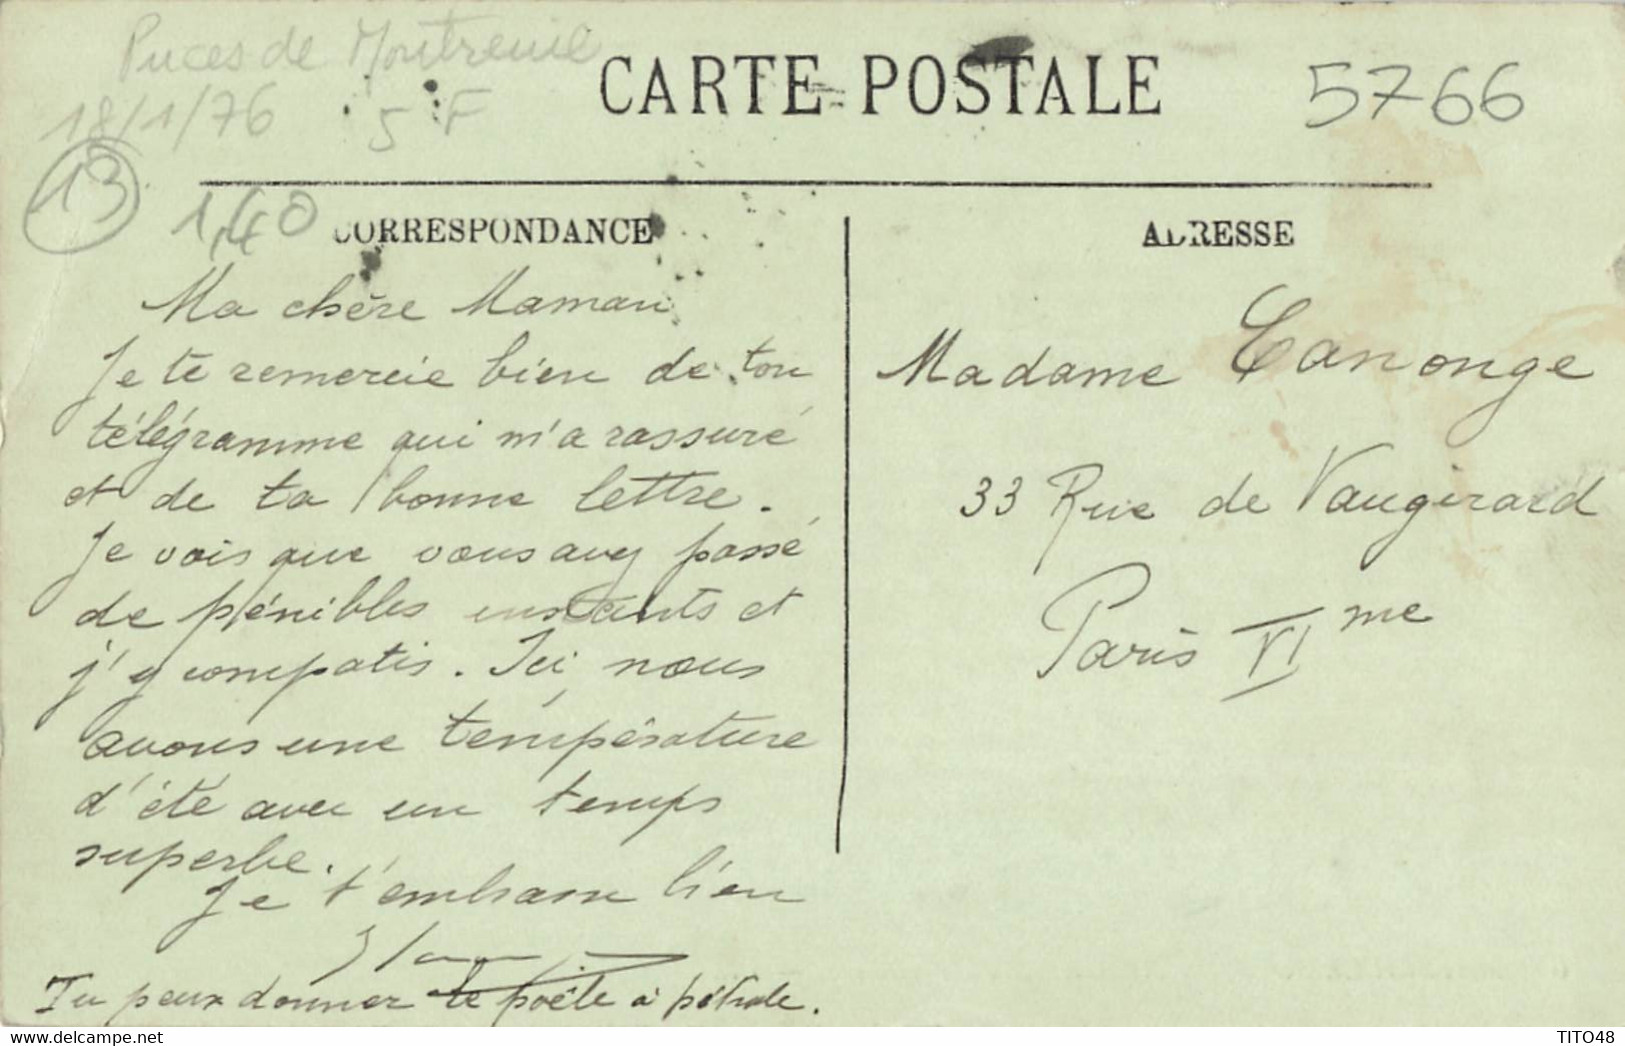 Puces de Montreuil
18/1/76 5 F
CARTE POSTALE
5766
13
1,40
CORRESPONDANCE
Ma chère Maman
Je te remercie bien de ton
télégramme qui m'a rassuré
et de ta bonne lettre.
Je vois que vous avez passé
de pénibles instants et
j'y compatis. Ici nous
avons une température
d'été avec un temps
superbe.
Je t'embrasse bien
Tu peux donner le poële à pétrole.
ADRESSE
Madame Canonge
33 Rue de Vaugirard
Paris VI me
TITO48